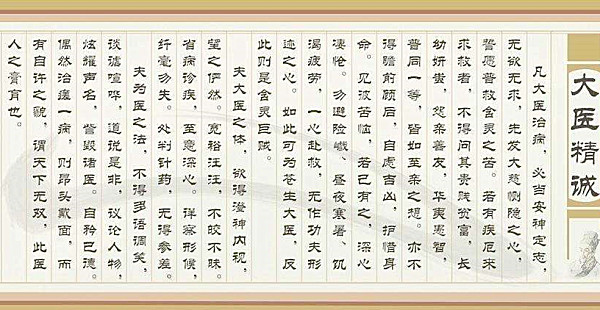 大医精诚
凡大医治病，必当安神定志，
无欲无求，先发大慈恻隐之心，
誓愿普救含灵之苦。若有疾厄来
求救者，不得问其贵贱贫富，长
幼妍蚩，怨亲善友，华夷愚智，
普同一等，皆如至亲之想。亦不
得瞻前顾后，自虑吉凶，护惜身
命。见彼苦恼，若己有之，深心
凄怆。勿避险巇、昼夜寒暑、饥
渴疲劳，一心赴救，无作功夫形
迹之心。如此可为苍生大医，反
此则是含灵巨贼。
夫大医之体，欲得澄神内视，
望之俨然。宽裕汪汪，不皎不昧。
省病诊疾，至意深心。详察形候，
纤毫勿失。处判针药，无得参差。
夫为医之法，不得多语调笑，
谈谑喧哗，道说是非，议论人物，
炫耀声名，訾毁诸医。自矜己德。
偶然治瘥一病，则昂头戴面，而
有自许之貌，谓天下无双，此医
人之膏肓也。